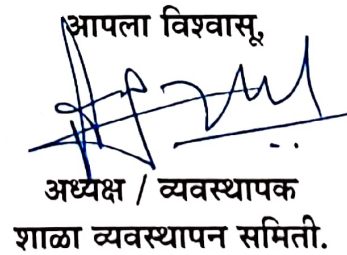 आपला विश्वासू,
अध्यक्ष / व्यवस्थापक
शाळा व्यवस्थापन समिती.